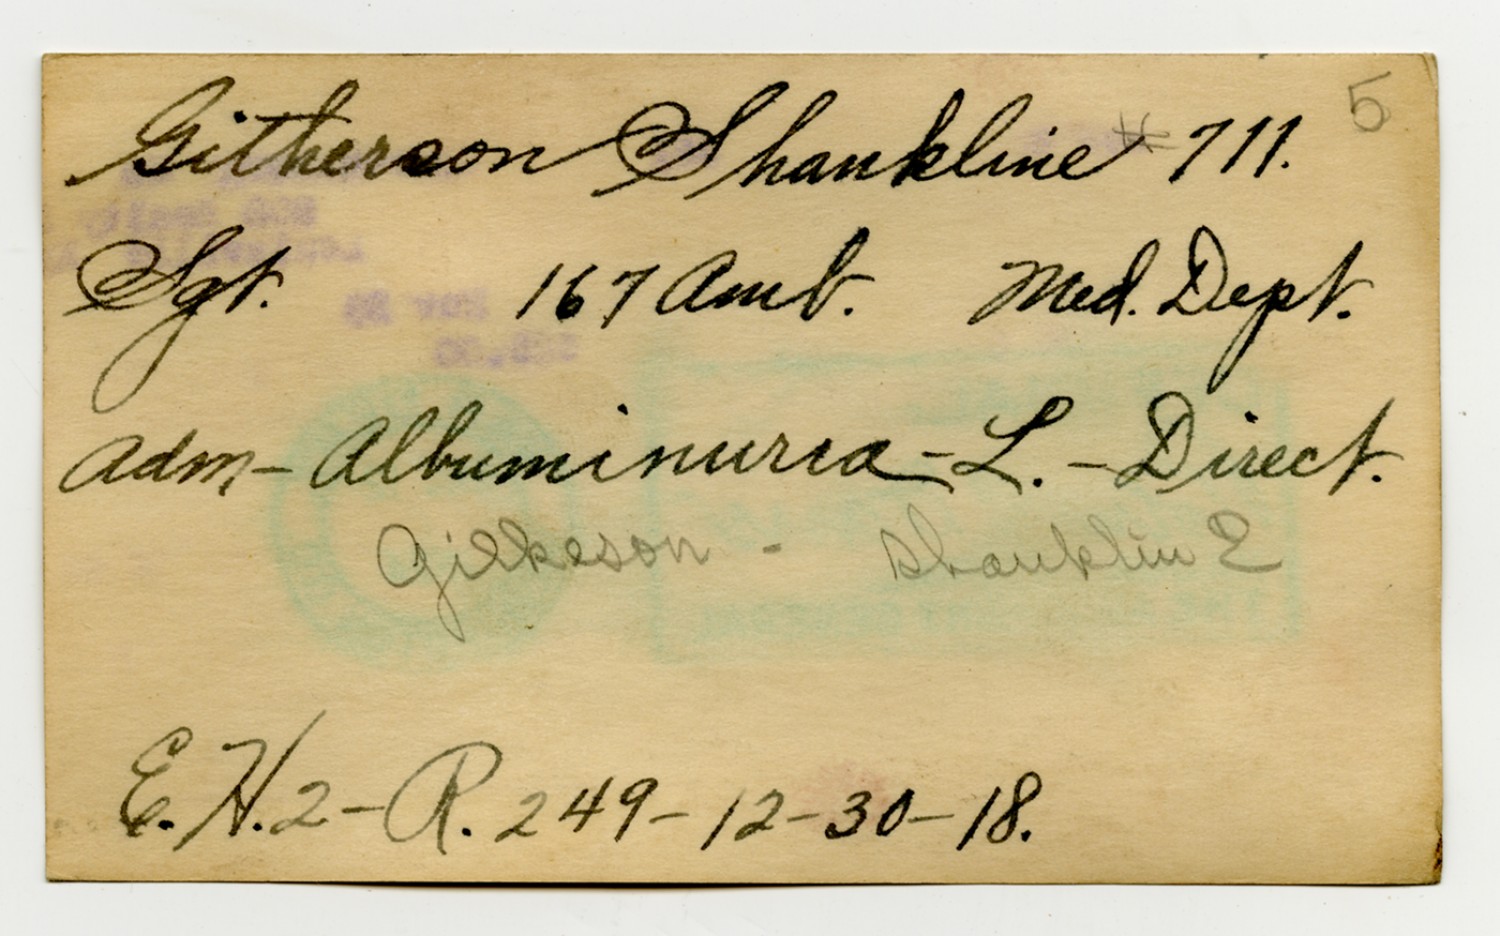 5
Githerson Shankline # 711.
Sgt. 167 Amb. Med. Dept.
Adm - Albuminuria - L. - Direct.
Gilkeson - Shanklin E
E. H. 2 - R. 249 - 12 - 30 - 18.